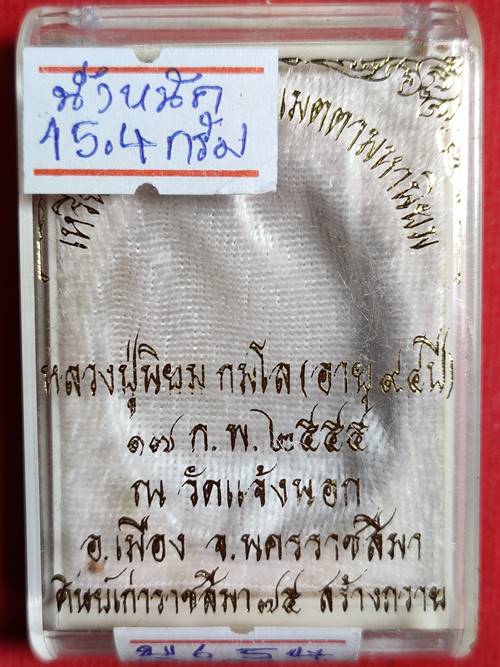 น้ำหนัก
15.4 กรัม
เมตตามหานิยม
หลวงปู่นิยม กมโล (อายุ ๙๔ปี)
๑๗ ก.พ. ๒๕๕๕
ณ วัดแจ้งนอก
อ.เมือง จ.นครราชสีมา
ศิษย์เก่าราชสีมา ๗๕ สร้างถวาย